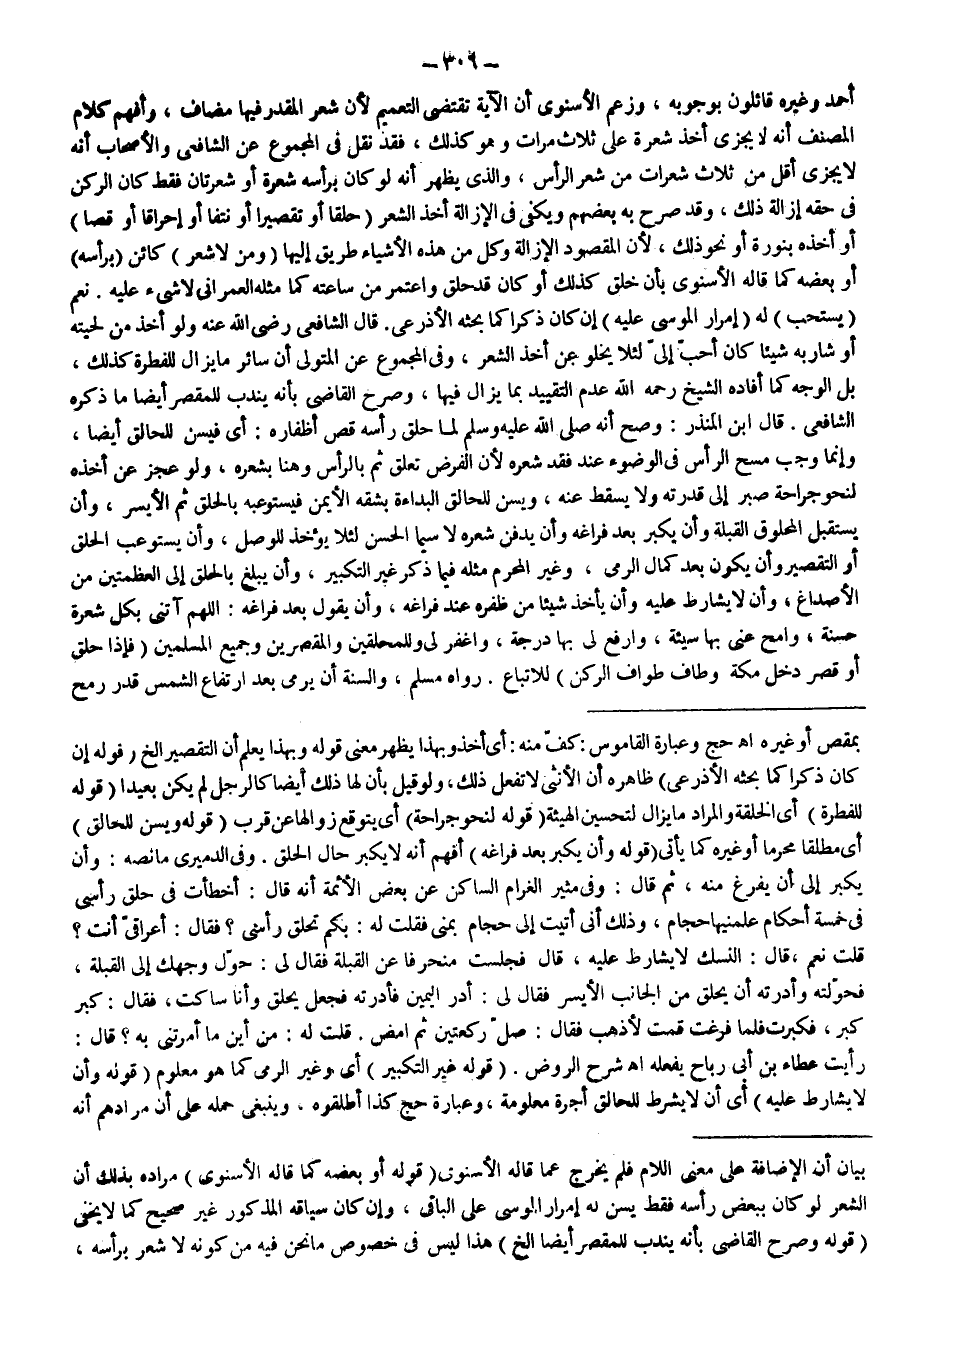 -٣٠٦-
أحمد وغيره قائلون بوجوبه ، وزعم الأسنوى أن الآية تقتضى التعميم لأن شعر المقدر فيها مضاف ، وأفهم كلام
المصنف أنه لا يجزى أخذ شعرة على ثلاث مرات وهو كذلك ، فقد نقل فى المجموع عن الشافعى والأصحاب أنه
لا يجزى أقل من ثلاث شعرات من شعر الرأس ، والذى يظهر أنه لو كان برأسه شعرة أو شعرتان فقط كان الركن
فى حقه إزالة ذلك ، وقد صرح به بعضهم ويكفى فى الإزالة أخذ الشعر ( حلقا أو تقصيرا أو نتفا أو إحراقا أو قصا )
أو أخذه بنورة أو نحو ذلك ، لأن المقصود الإزالة وكل من هذه الأشياء طريق إليها ( ومن لا شعر ) كائن (برأسه)
أو بعضه كما قاله الأسنوى بأن خلق كذلك أو كان قد حلق واعتمر من ساعته كما مثله العمرانى لا شىء عليه . نعم
( يستحب ) له ( إمرار الموسى عليه ) إن كان ذكرا كما بحثه الأذرعى. قال الشافعى رضى الله عنه ولو أخذ من لحيته
أو شاربه شيئا كان أحبّ إلىّ لئلا يخلو عن أخذ الشعر ، وفى المجموع عن المتولى أن سائر ما يزال للفطرة كذلك ،
بل الوجه كما أفاده الشيخ رحمه الله عدم التقييد بما يزال فيها ، وصرح القاضى بأنه يندب للمقصر أيضا ما ذكره
الشافعى . قال ابن المنذر : وصح أنه صلى الله عليه وسلم لما حلق رأسه قص أظفاره : أى فيسن للحالق أيضا ،
وإنما وجب مسح الرأس فى الوضوء عند فقد شعره لأن الفرض تعلق ثم بالرأس وهنا بشعره ، ولو عجز عن أخذه
لنحو جراحة صبر إلى قدرته ولا يسقط عنه ، ويسن للحالق البداءة بشقه الأيمن فيستوعبه بالحلق ثم الأيسر ، وأن
يستقبل المحلوق القبلة وأن يكبر بعد فراغه وأن يدفن شعره لا سيما الحسن لئلا يؤخذ للوصل ، وأن يستوعب الحلق
أو التقصير وأن يكون بعد كمال الرمى ، وغير المحرم مثله فيما ذكر غير التكبير ، وأن يبلغ بالحلق إلى العظمتين من
الأصداغ ، وأن لا يشارط عليه وأن يأخذ شيئا من ظفره عند فراغه ، وأن يقول بعد فراغه : اللهم آتنى بكل شعرة
حسنة ، وامح عنى بها سيئة ، وارفع لى بها درجة ، واغفر لى وللمحلقين والمقصرين وجميع المسلمين ( فإذا حلق
أو قصر دخل مكة وطاف طواف الركن ) للاتباع . رواه مسلم ، والسنة أن يرمى بعد ارتفاع الشمس قدر رمح
بمقص أو غيره اه حج وعبارة القاموس : كفّ منه : أى أخذ وبهذا يظهر معنى قوله وبهذا يعلم أن التقصير الخ ( قوله إن
كان ذكرا كما بحثه الأذرعى) ظاهره أن الأنثى لا تفعل ذلك ، ولو قيل بأن لها ذلك أيضا كالرجل لم يكن بعيدا ( قوله
للفطرة ) أى الخلقة والمراد ما يزال لتحسين الهيئة ( قوله لنحو جراحة) أى يتوقع زوالها عن قرب ( قوله ويسن للحالق )
أى مطلقا محرما أو غيره كما يأتى (قوله وأن يكبر بعد فراغه ) أفهم أنه لا يكبر حال الحلق . وفى الدميرى ما نصه : وأن
يكبر إلى أن يفرغ منه ، ثم قال : وفى مثير الغرام الساكن عن بعض الأئمة أنه قال : أخطأت فى حلق رأسى
فى خمسة أحكام علمنيها حجام ، وذلك أنى أتيت إلى حجام بمنى فقلت له : بكم تحلق رأسى ؟ فقال : أعراقىّ أنت ؟
قلت نعم ، قال : النسك لا يشارط عليه ، قال فجلست منحرفا عن القبلة فقال لى : حوّل وجهك إلى القبلة ،
فحوّلته وأدرته أن يحلق من الجانب الأيسر فقال لى : أدر اليمين فأدرته فجعل يحلق وأنا ساكت ، فقال : كبر
كبر ، فكبرت فلما فرغت قمت لأذهب فقال : صلّ ركعتين ثم امض . قلت له : من أين ما أمرتنى به ؟ قال :
رأيت عطاء بن أبى رباح يفعله اه شرح الروض . ( قوله غير التكبير ) أى وغير الرمى كما هو معلوم ( قوله وأن
لا يشارط عليه ) أى أن لا يشرط للحالق أجرة معلومة ، وعبارة حج كذا أطلقوه ، وينبغى حمله على أن مرادهم أنه
بيان أن الإضافة على معنى اللام فلم يخرج عما قاله الأسنوى ( قوله أو بعضه كما قاله الأسنوى ) مراده بذلك أن
الشعر لو كان ببعض رأسه فقط يسن له إمرار الموسى على الباقى ، وإن كان سياقه المذكور غير صحيح كما لا يخفى
( قوله وصرح القاضى بأنه يندب للمقصر أيضا الخ ) هذا ليس فى خصوص ما نحن فيه من كونه لا شعر برأسه ،